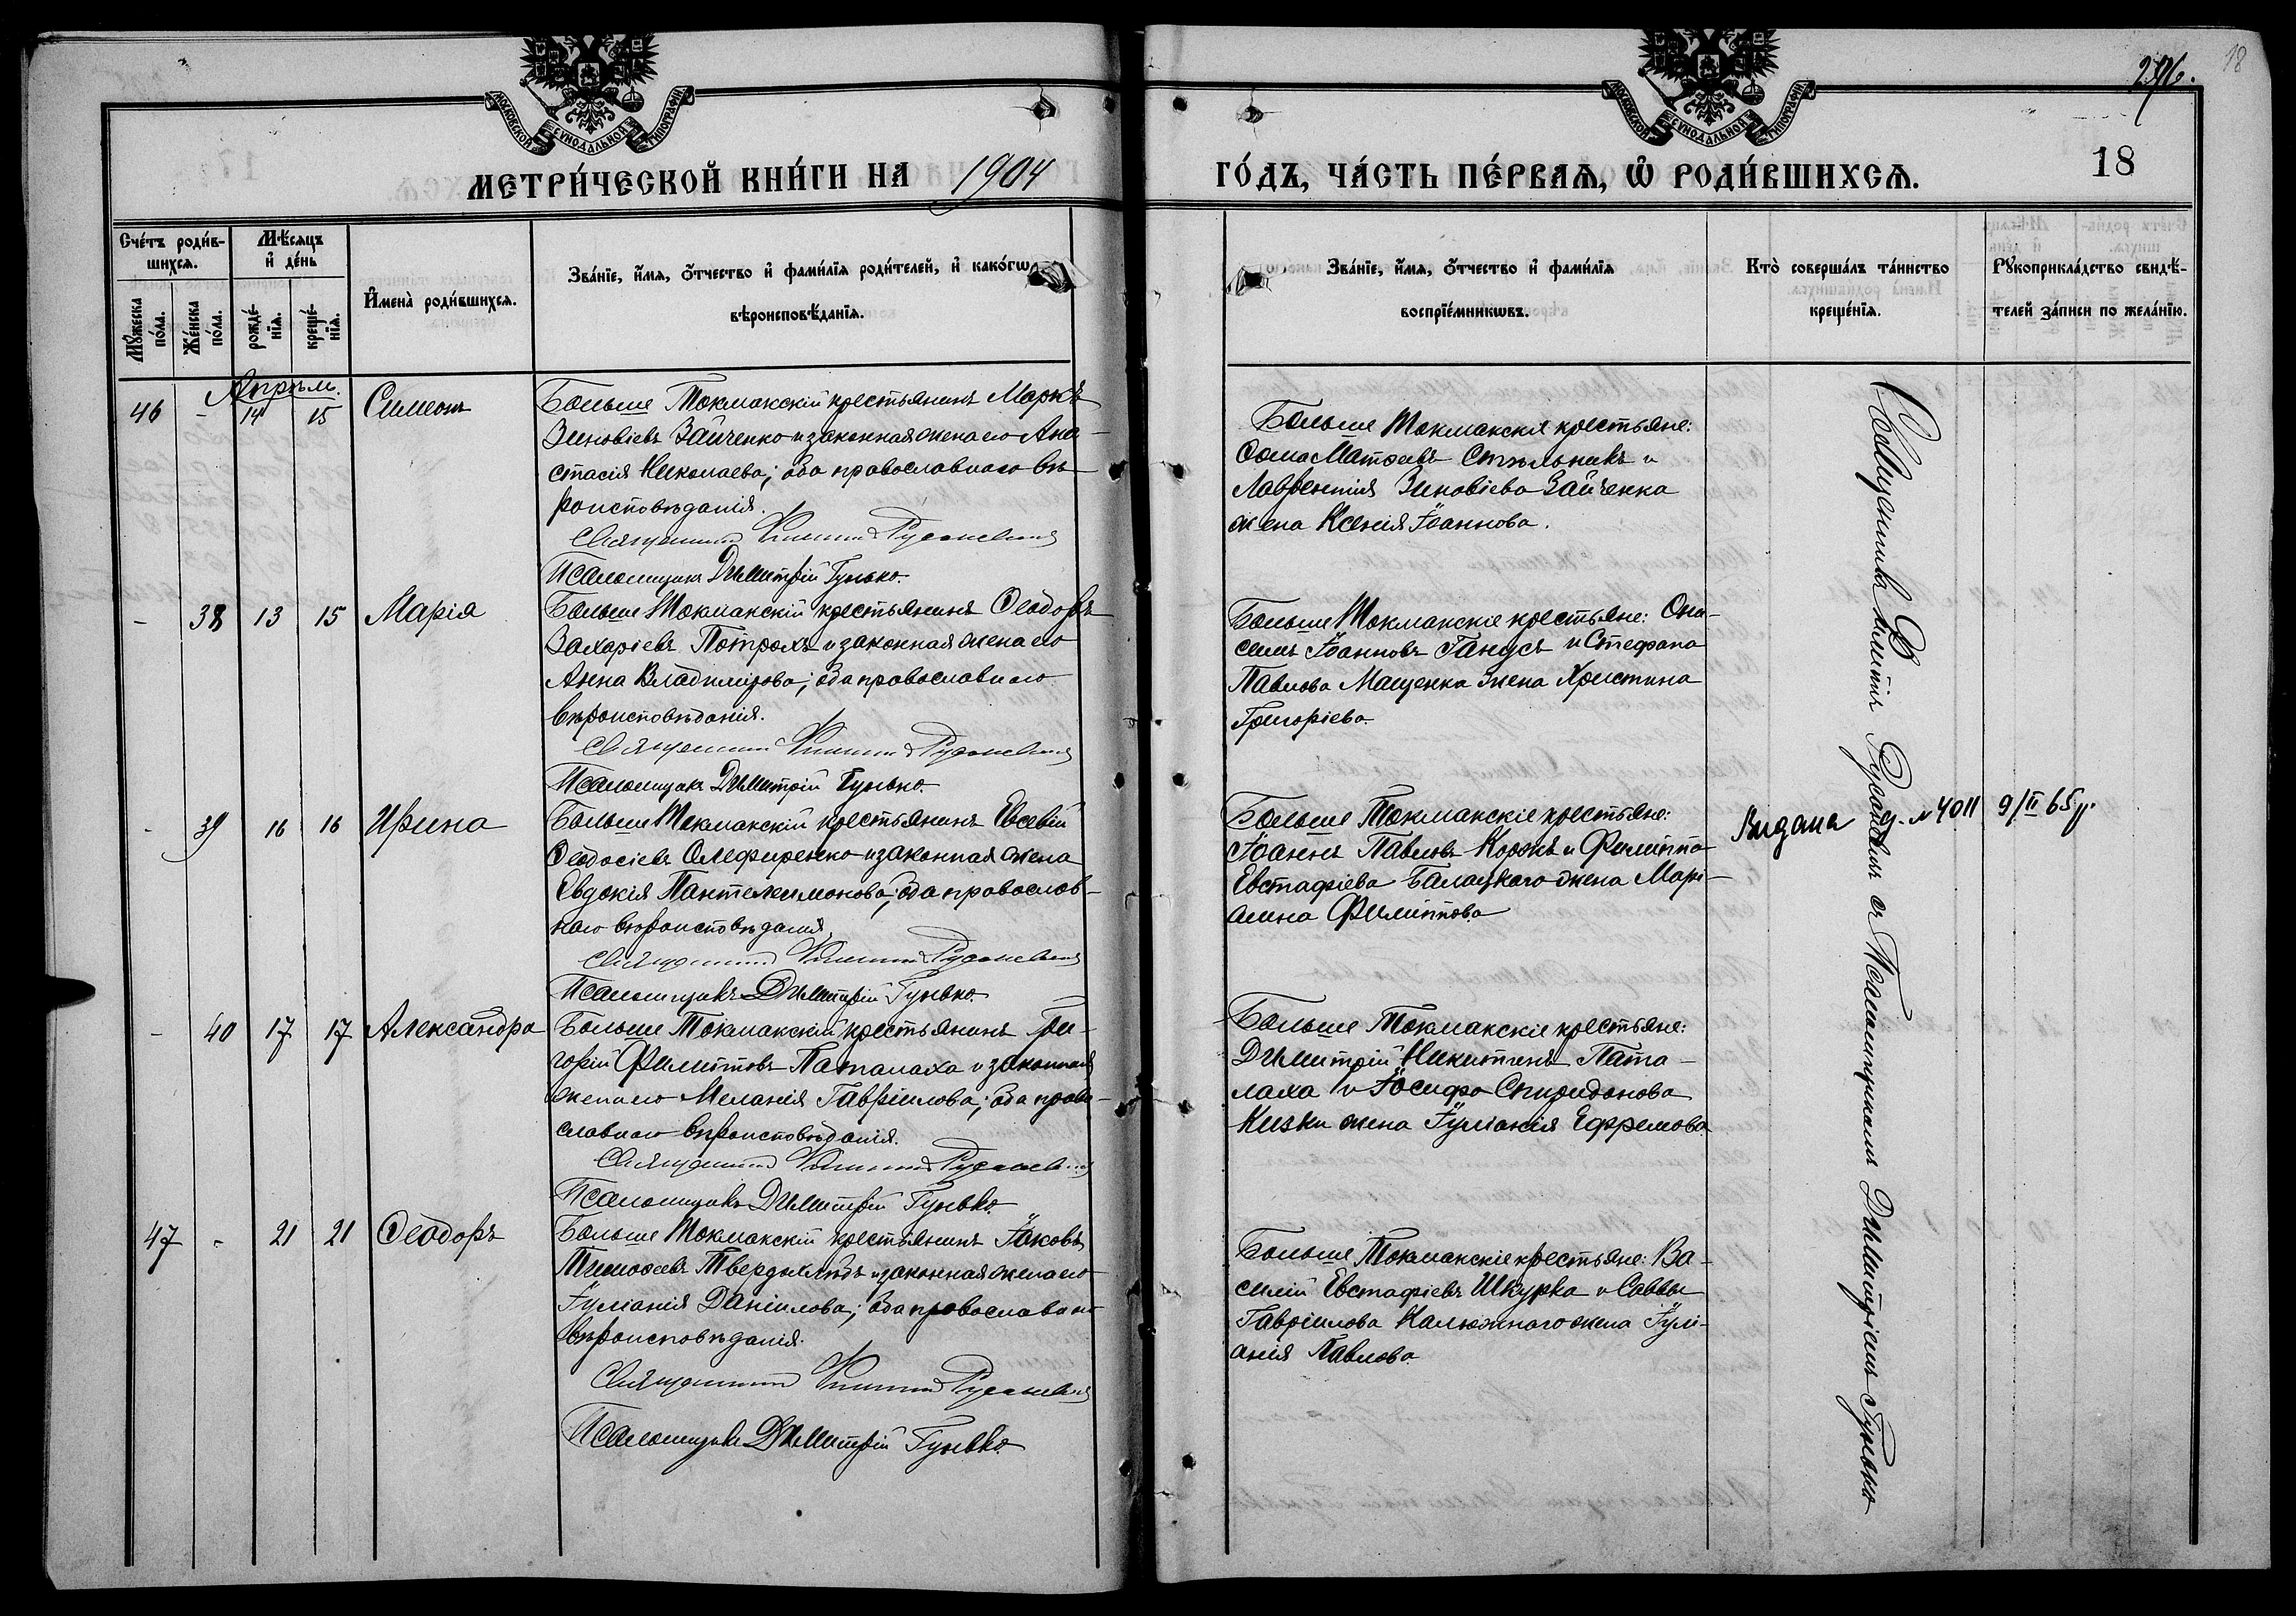 296.
18
МОСКОВСКОЙ СѴНОДАЛЬНОЙ ТИПОГРАФІИ
МОСКОВСКОЙ СѴНОДАЛЬНОЙ ТИПОГРАФІИ
МЕТРИ́ЧЕСКОЙ КНИ́ГИ НА 1904
ГО́ДЪ, ЧА́СТЬ ПЕ́РВАѦ, Ѡ҆ РОДИ́ВШИХСѦ.
18
Сче́тъ роди́в-
шихсѧ.
Мꙋ́жеска по́ла.
Же́нска по́ла.
Мѣ́сѧцъ
и҆ де́нь
рожде́-
нїѧ.
креще́-
нїѧ.
И҆мена̀ роди́вшихсѧ.
Зва́нїе, и҆́мѧ, ѻ҆́тчество и҆ фами́лїѧ роди́телей, и҆ како́гѡ
вѣроисповѣ́данїѧ.
Зва́нїе, и҆́мѧ, ѻ҆́тчество и҆ фами́лїѧ
воспрїе́мникѡвъ.
Кто̀ соверша́лъ та́инство
креще́нїѧ.
Рꙋкоприкла́дство свидѣ́-
телей за́писи по жела́нїю.
Апрѣль.
46 - 14 15 Симеонъ
Больше Токмакскій крестьянинъ Маркъ
Зиновіевъ Зайченко и законная жена его Ана-
стасія Николаева; оба православнаго вѣ-
роисповѣданія.
Священникъ
Псаломщикъ Димитрій Гунько.
Больше Токмакскіе крестьяне:
Ѳома Матѳеевъ Стрѣльникъ и
Лаврентія Зиновіева Зайченка
жена Ксенія Іоаннова.
- 38 13 15 Марія
Больше Токмакскій крестьянинъ Ѳеодоръ
Захаріевъ Потрохъ и законная жена его
Анна Владимірова; оба православнаго
вѣроисповѣданія.
Священникъ
Псаломщикъ Димитрій Гунько.
Больше Токмакскіе крестьяне: Они-
симъ Іоанновъ Ганусъ и Стефана
Павлова Мащенка жена Христина
Григоріева.
- 39 16 16 Ирина
Больше Токмакскій крестьянинъ Евсевій
Ѳеодосіевъ Олефиренко и законная жена
Евдокія Пантелеимонова; оба православ-
наго вѣроисповѣданія
Священникъ
Псаломщикъ Димитрій Гунько.
Больше Токмакскіе крестьяне:
Іоаннъ Павловъ Коржъ и Филиппа
Евстафіева Балацкаго жена Марі-
амна Филиппова
Видана № 4011 9/II 65 р.
- 40 17 17 Александра
Больше Токмакскій крестьянинъ Гри-
горій Филипповъ Паталаха и законная
жена его Меланія Гавріилова; оба право-
славнаго вѣроисповѣданія.
Священникъ
Псаломщикъ Димитрій Гунько.
Больше Токмакскіе крестьяне:
Димитрій Никитинъ Пата-
лаха и Іосифа Спиридонова
Кизки жена Іуліанія Ефремова
47 - 21 21 Ѳеодоръ
Больше Токмакскій крестьянинъ Іаковъ
Тимоѳеевъ Твердохлѣбъ и законная жена его
Іуліанія Даніилова; оба православнаго
вѣроисповѣданія.
Священникъ
Псаломщикъ Димитрій Гунько.
Больше Токмакскіе крестьяне: Ва-
силій Евстафіевъ Шкурка и Саввы
Гавріилова Калюжнаго жена Іулі-
анія Павлова
Священникъ Филиппъ съ Псаломщикомъ Димитріемъ Гунько